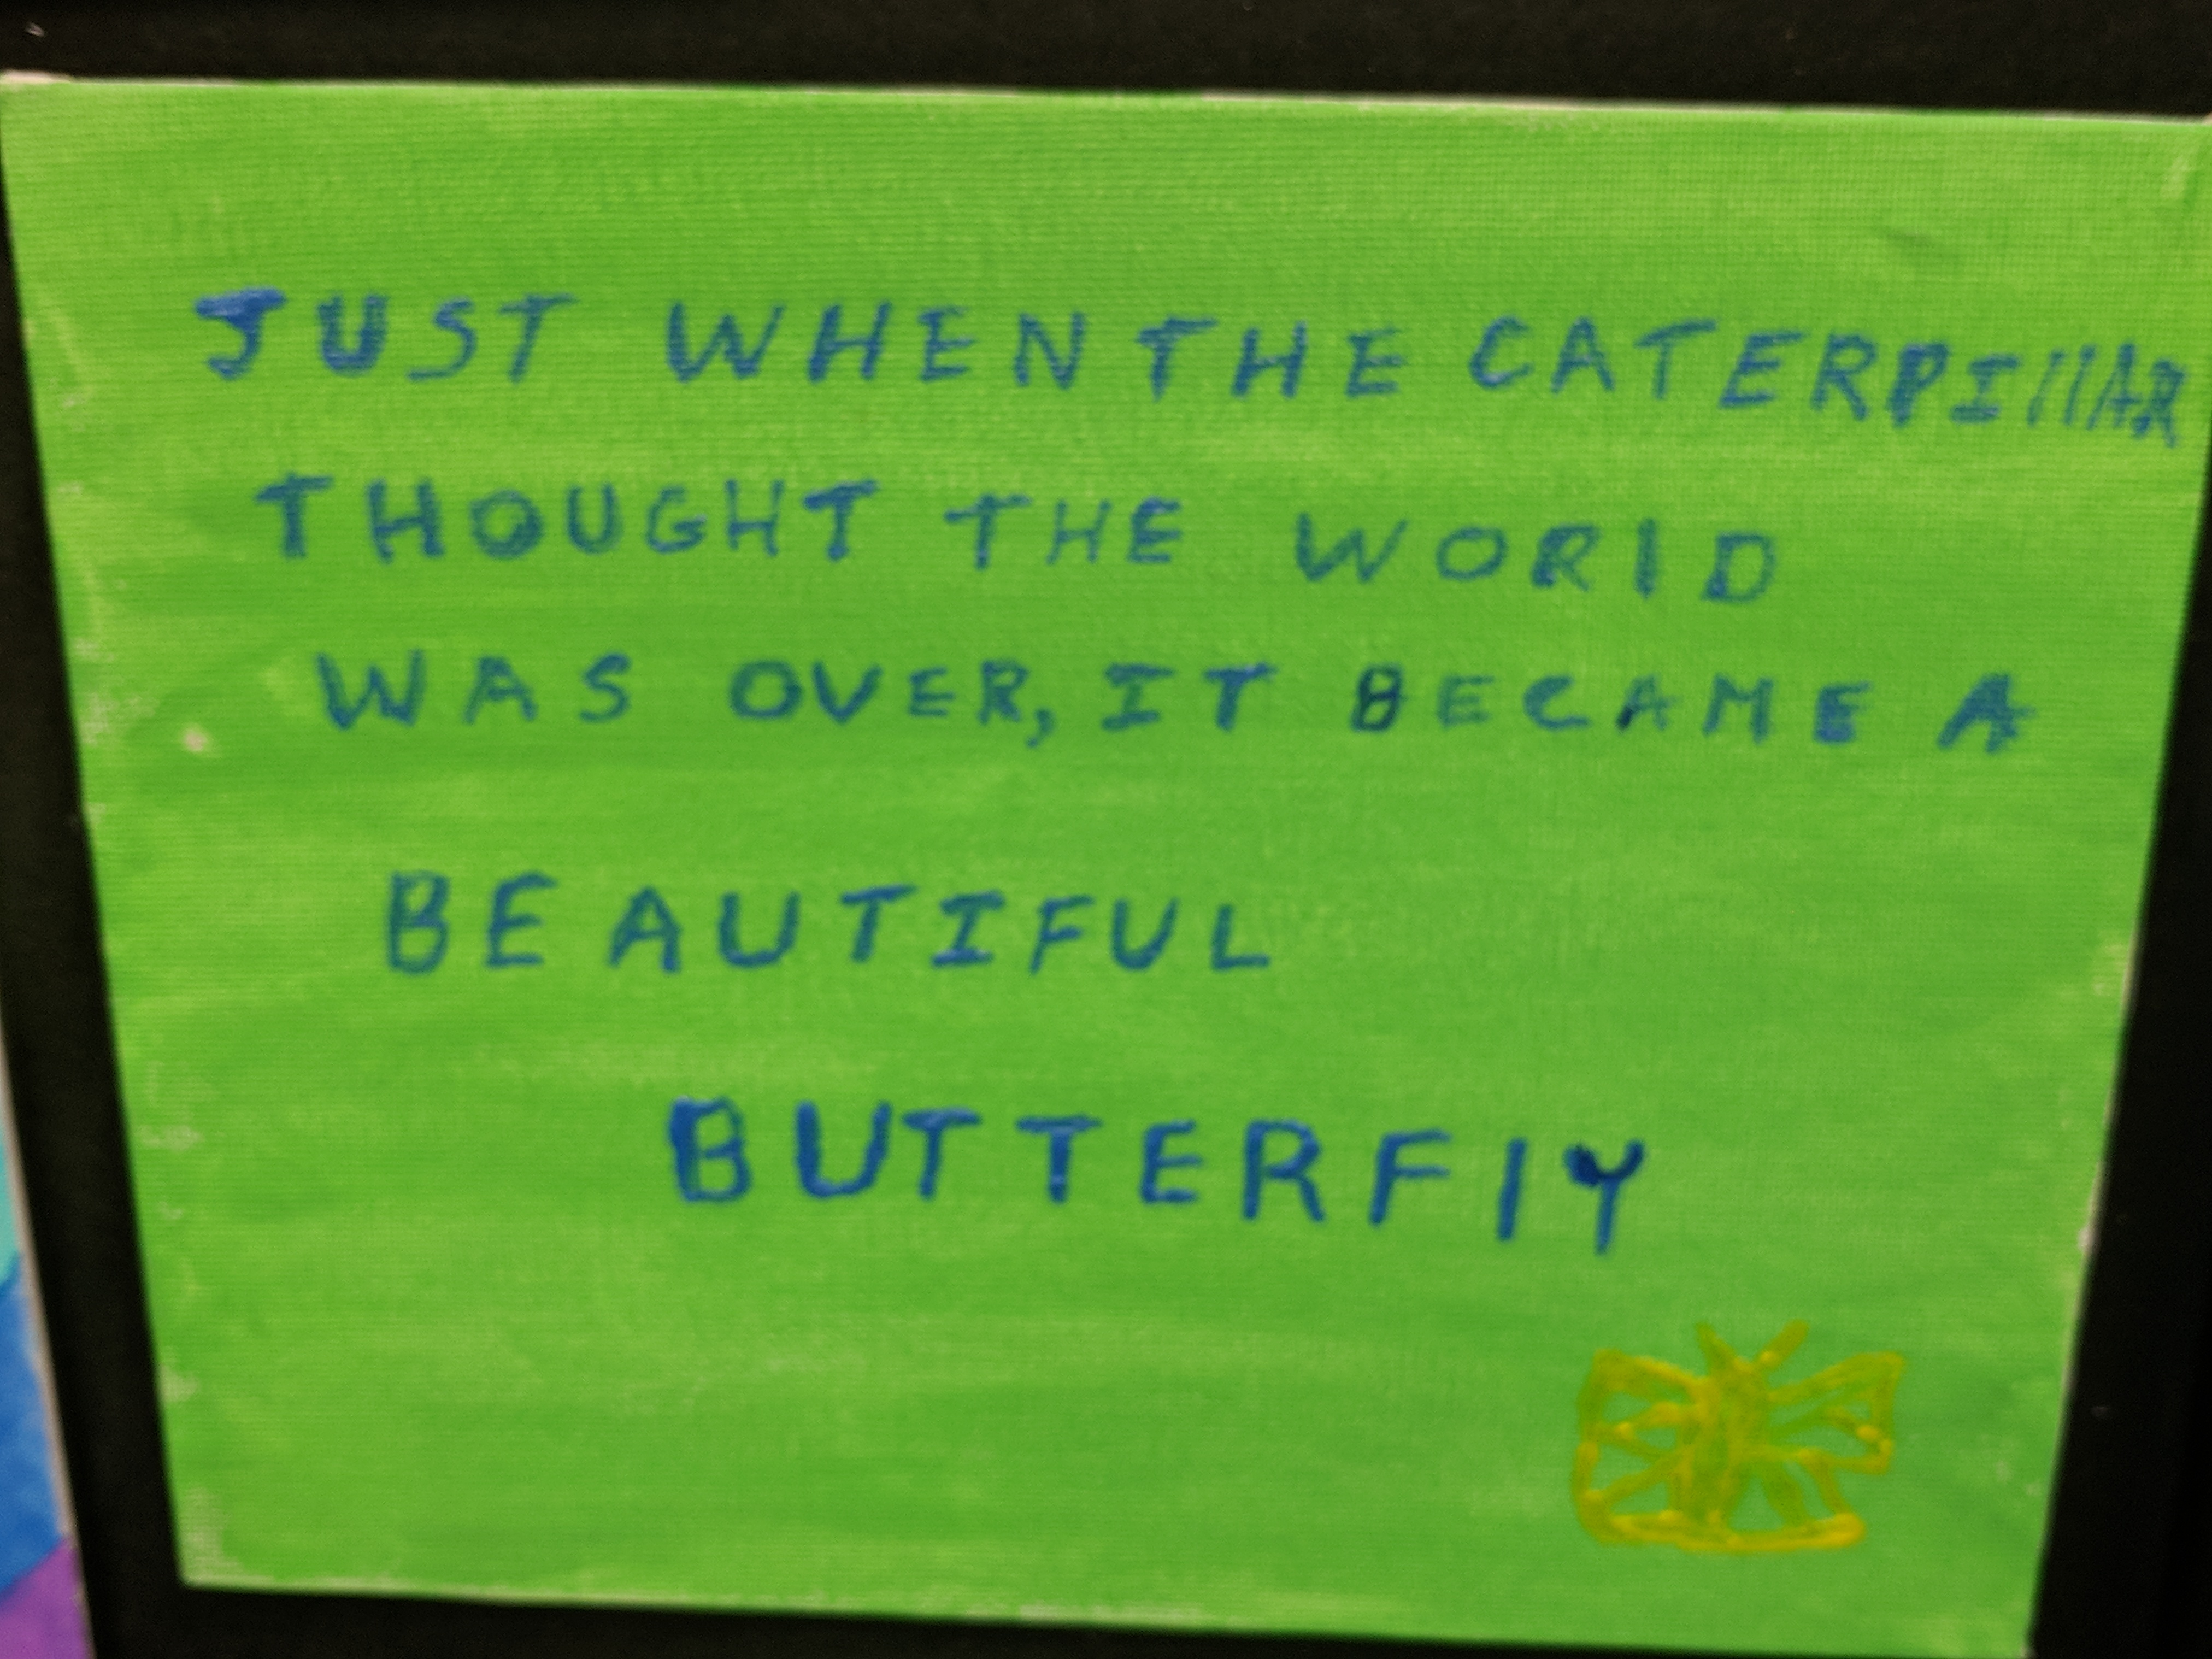 JUST WHEN THE CATERPIllAR
THOUGHT THE WORlD
WAS OVER, IT BECAME A
BEAUTIFUL
BUTTERFlY